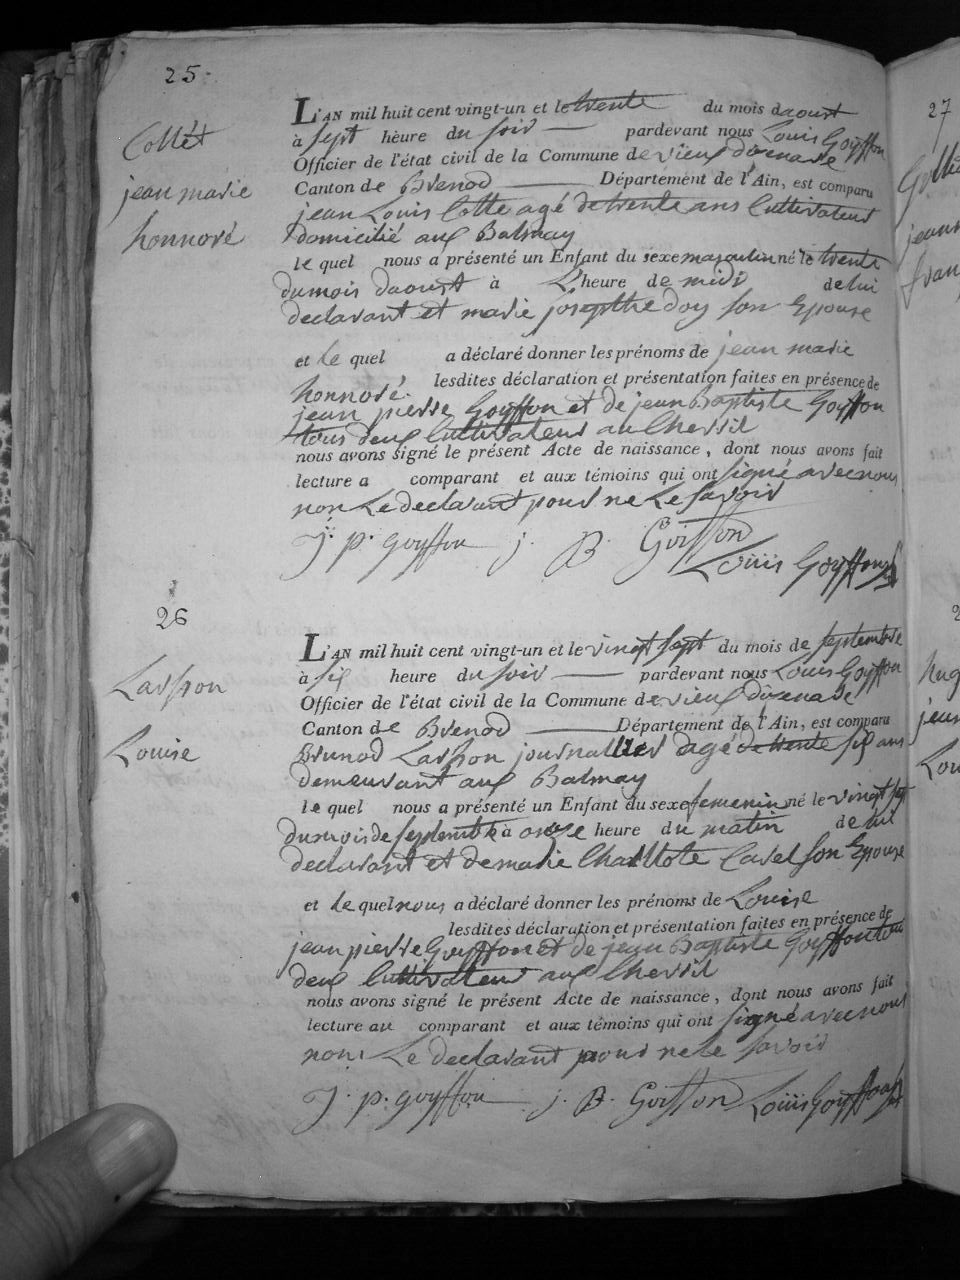 25.
Collet
jean marie
honnoré
L'AN mil huit cent vingt-un et le trente du mois daoust
à sept hèure du soir pardevant nous Louis Goyffon
Officier de l'état civil de la Commune de vieux dizenave
Canton de Brenod Département de l'Ain, est comparu
jean Louis Collet agé de trente ans Cultivateur
domicilié aux Balmay
le quel nous a présenté un Enfant du sexe masculin né le trente
du mois daoust à L'heure de midi de lui
declarant et marie josepthe doy son Epouse
et le quel a déclaré donner les prénoms de jean marie
honnoré. lesdites déclaration et présentation faites en présence de
jean pierre Goyffon et de jean Baptiste Goyffon
tous deux Cultivateur au Chevril
nous avons signé le présent Acte de naissance, dont nous avons fait
lecture a comparant et aux témoins qui ont signé avec nous
non Le declarant pour ne Le savoir
j. p. goyffon j. B. Goiffon
Louis Goyffon
26
Lasson
Louise
L'AN mil huit cent vingt-un et le vingt sept du mois de septembre
à six heure du soir pardevant nous Louis Goyffon
Officier de l'état civil de la Commune de vieux dizenave
Canton de Brenod Département de l'Ain, est comparu
Brunod Lasson journallier agé de trente six ans
demeurant aux Balmay
le quel nous a présenté un Enfant du sexe femenin né le vingt sept
du mois de septembre à onze heure du matin de lui
declarant et de marie Charllote Cavel son Epouse
et le quel nous a déclaré donner les prénoms de Louise
lesdites déclaration et présentation faites en présence de
jean pierre Goyffon et de jean Baptiste Goyffon tous
deux Cultivateur aux Chevril
nous avons signé le présent Acte de naissance, dont nous avons fait
lecture au comparant et aux témoins qui ont signé avec nous
non Le declarant pour ne le savoir
j. p. goyffon j. B. Goiffon Louis Goyffon
27